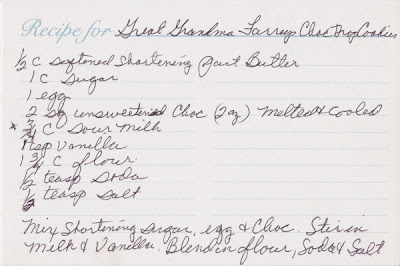 Recipe for Great Grandma Farrup Choc Drop Cookies
1/2 C Softened Shortening (part Butter
1 C Sugar
1 egg
2 sq unsweetened Choc (2 oz) Melted & Cooled
* 3/4 C Sour Milk
1 tsp Vanilla
1 3/4 C flour
1/2 teasp Soda
1/2 teasp Salt
Mix Shortening Sugar, egg & Choc. Stir in
Milk & Vanilla. Blend in flour, Soda & Salt